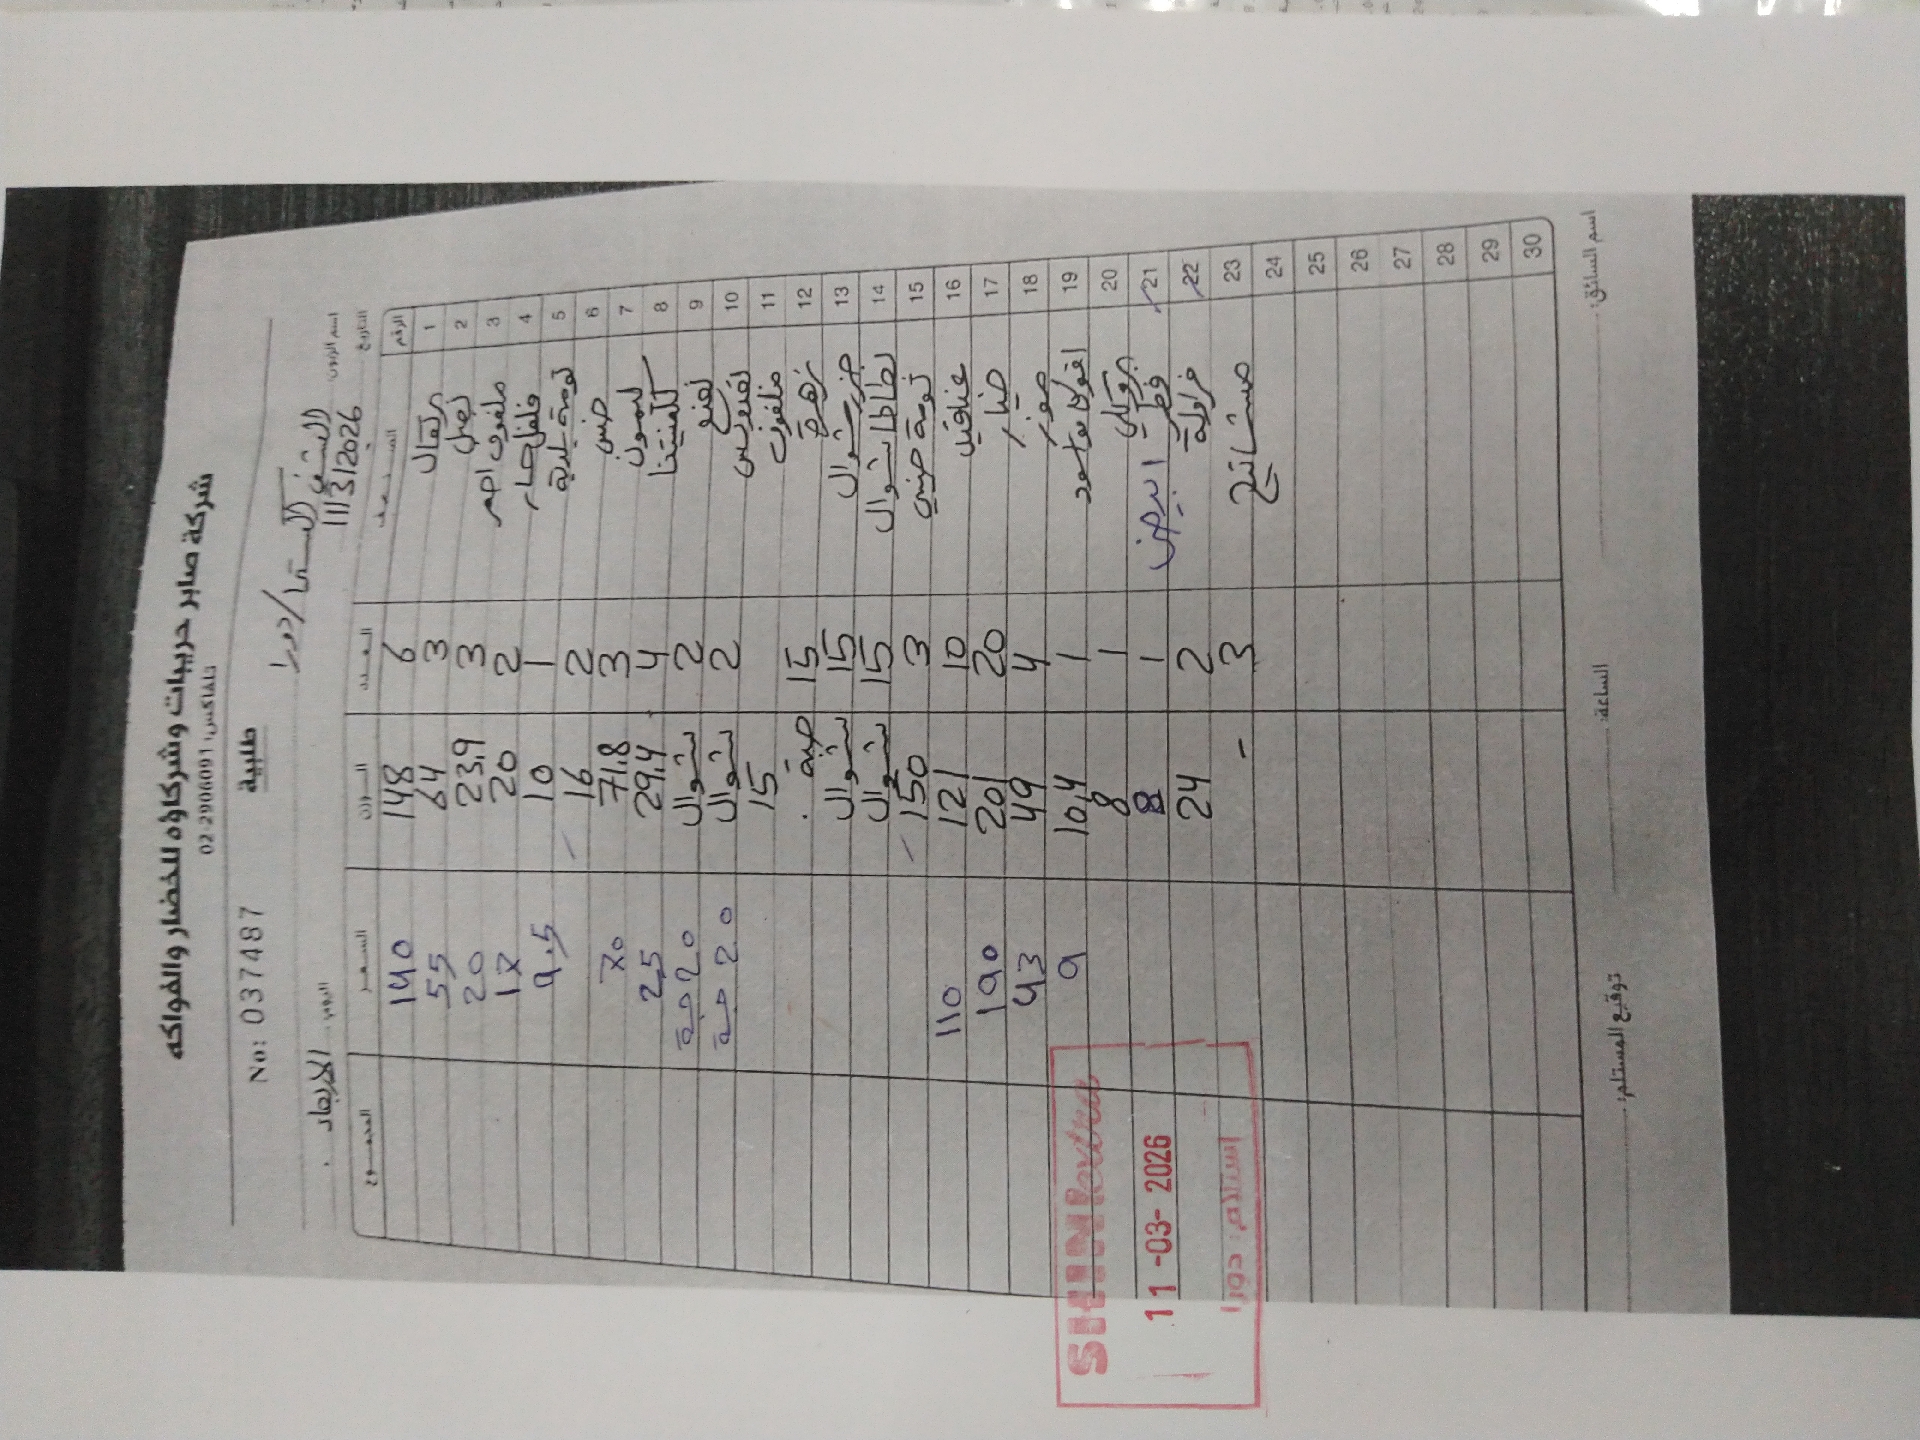 شركة صابر حريبات وشركاؤه للخضار والفواكه
تلفاكس: 02 2906091
No: 037487
طلبية
اسم الزبون
اليوم: الاربعاء
التاريخ 11/3/2026
الرقم الصنف العدد الوزن السعر المجموع
1 برتقال 6 148 140
2 بصل 3 64 55
3 ملفوف احمر 3 23.9 20
4 فلفل حار 2 20 17
5 ثومة بلدية 1 10 9.5
6 خس 2 16
7 ليمون 3 71.8 70
8 كلمنتينا 4 29.4 25
9 نعنع 2 شوال 20 حبة
10 بقدونس 2 شوال 20 حبة
11 ملفوف 15
12 زهرة 15
13 جزر شوال 15 شوال
14 بطاطا شوال 15 شوال
15 ثومة صيني 3 150
16 10 121 110
17 خيار 20 201 190
18 موز 4 49 43
19 افوكادو 1 10.4 9
20 بروكلي 1 8
21 فطر ابيض 1 8
22 فراولة 2 24
23 3 -
24
25
26
27
28
29
30
SHINI extra
11-03-2026
استلام: دورا
اسم السائق:
الساعة:
توقيع المستلم: